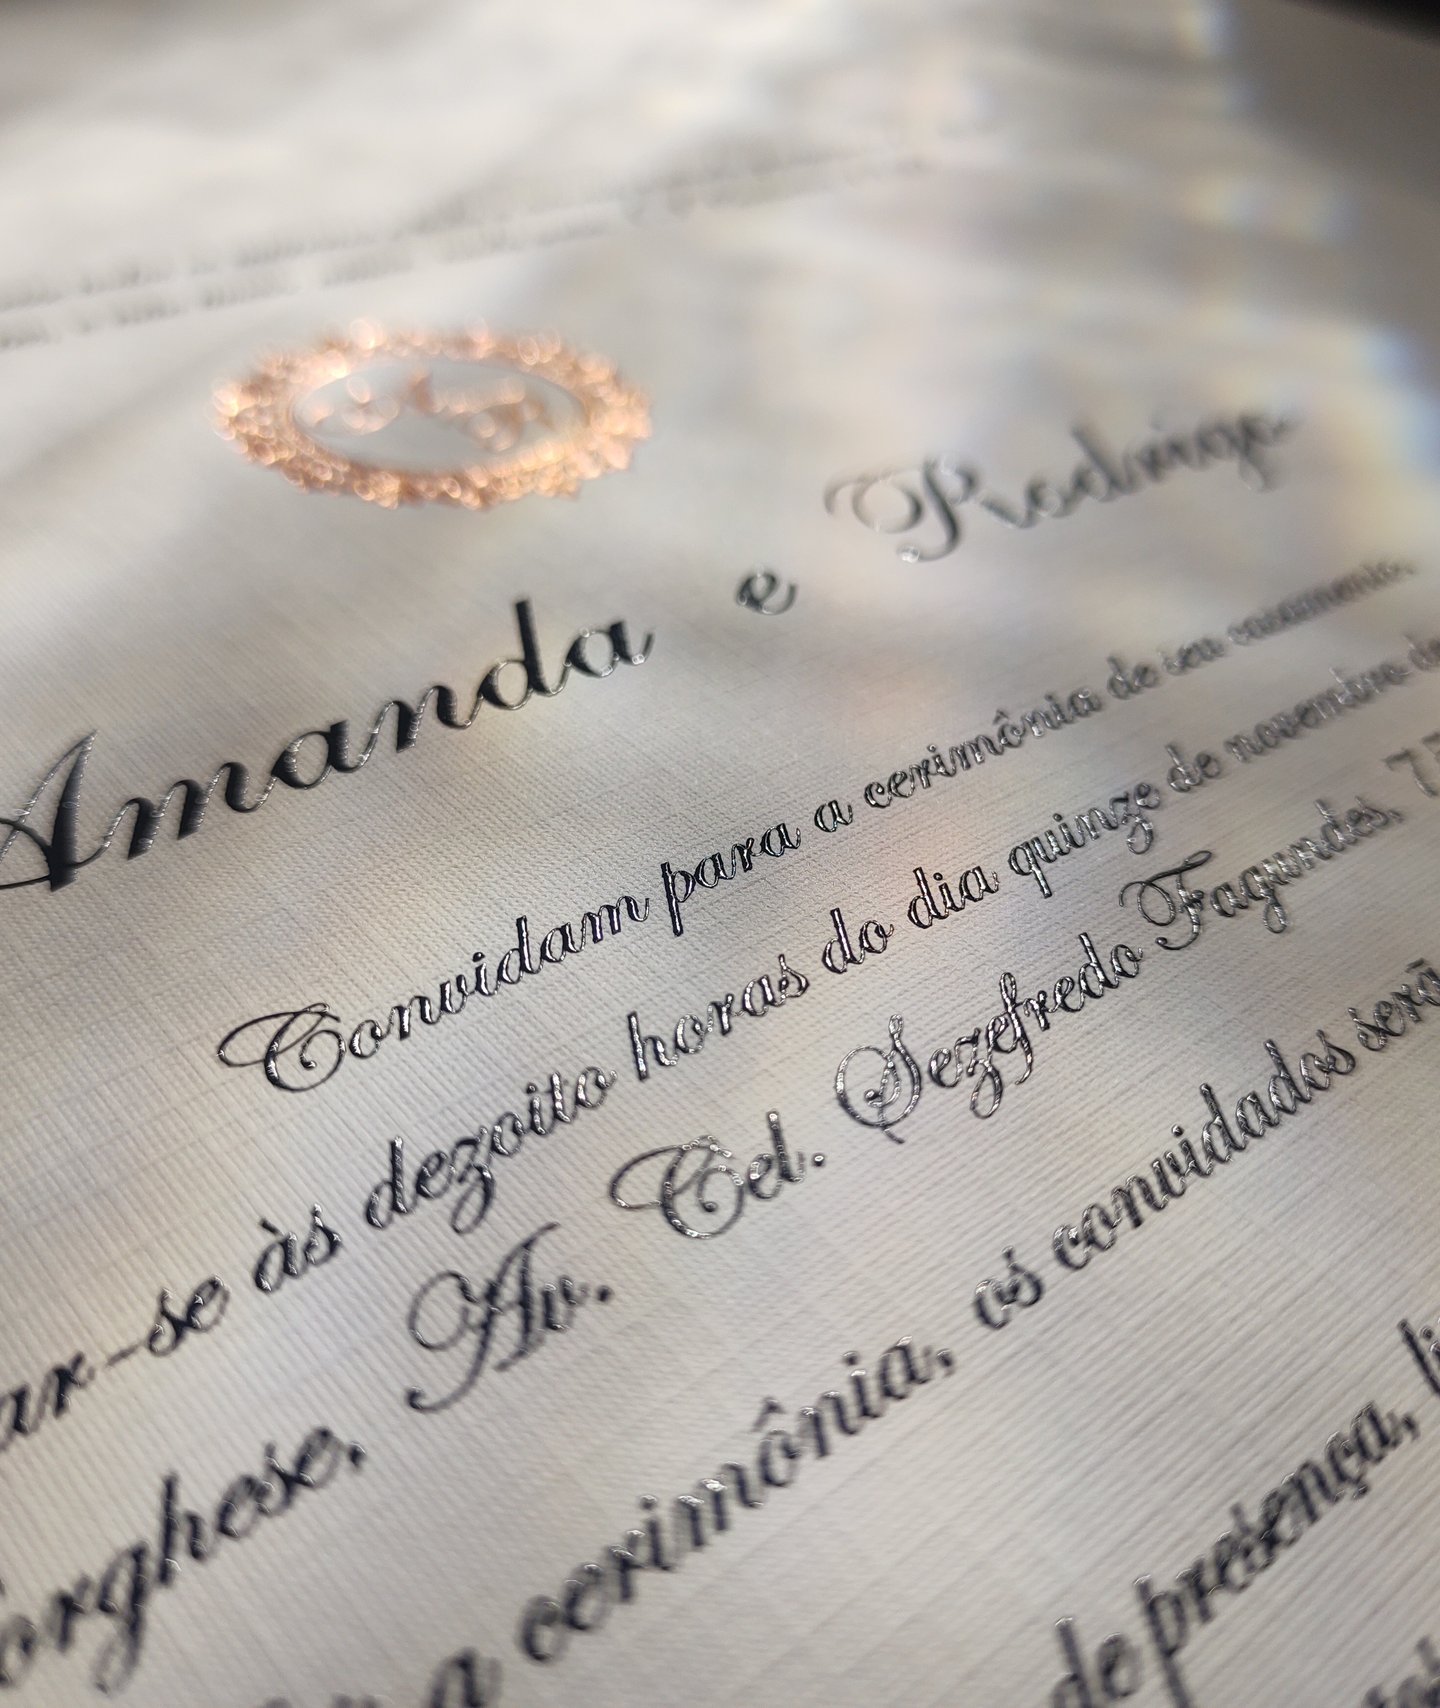 Amanda e Rodrigo
Convidam para a cerimônia de seu casamento,
ar-se às dezoito horas do dia quinze de novembro de
orghese, Av. Cel. Sezefredo Fagundes, 75
a cerimônia, os convidados serã
de presença, li